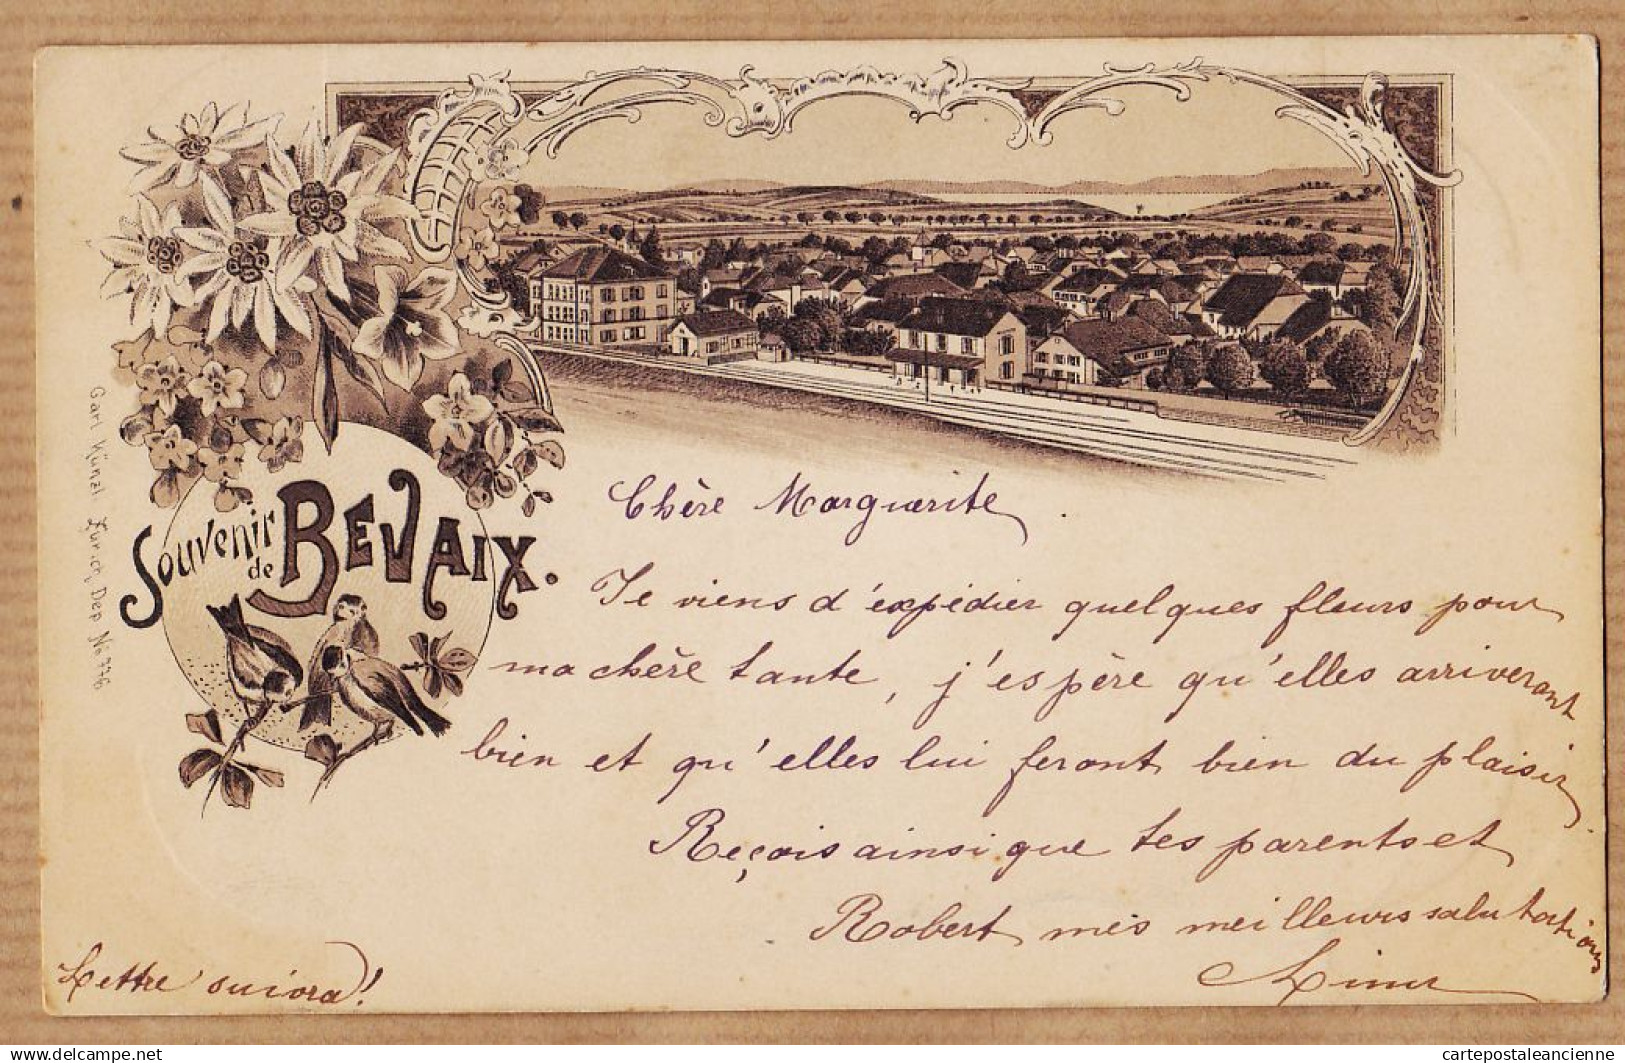 Souvenir
de
BEVAIX.
Carl Künzl Zürich, Dep No 776
Chère Marguerite.
Je viens d'expédier quelques fleurs pour
ma chère tante, j'espère qu'elles arriveront
bien et qu'elles lui feront bien du plaisir
Reçois ainsi que tes parents et
Robert mes meilleurs salutations
Lettre suivra!
delcampe.net
cartepostaleancienne